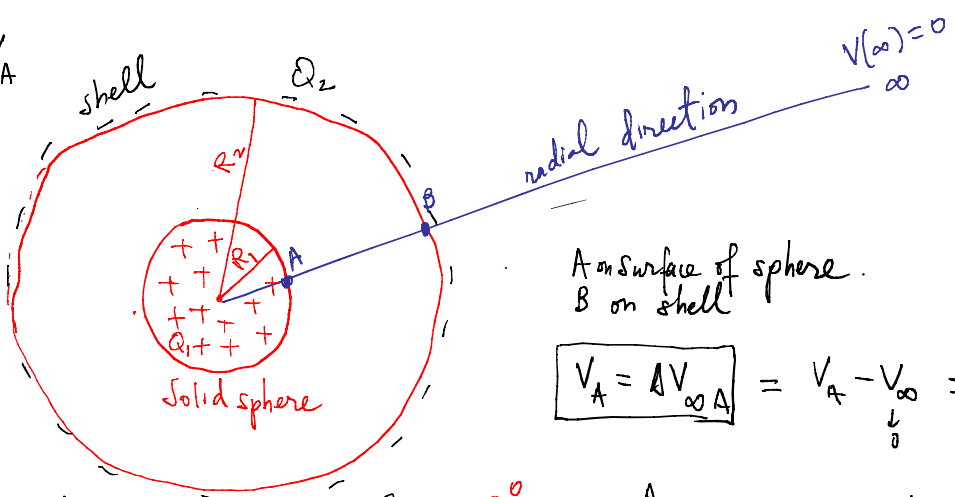 A
shell
Q₂
V(∞)=0
∞
radial direction
R₂
B
R₁
A
+ +
+ + +
+ + + +
+ +
Q₁ + +
Solid sphere
A on surface of sphere.
B on shell
V_A = ΔV_∞A = V_A − V_∞ =
↓
0
0
A